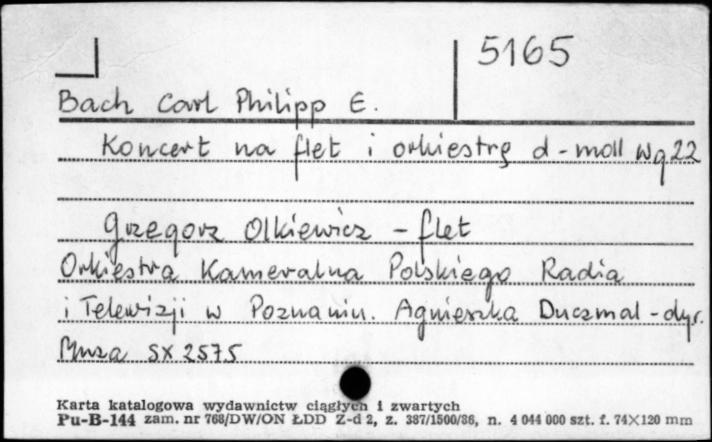 5165
Bach Carl Philipp E.
Koncert na flet i orkiestrę d-moll Wq22
Grzegorz Olkiewicz - flet
Orkiestra Kameralna Polskiego Radia
i Telewizji w Poznaniu. Agnieszka Duczmal - dyr.
Muza SX 2575
Karta katalogowa wydawnictw ciągłych i zwartych
Pu-B-144 zam. nr 768/DW/ON ŁDD Z-d 2, z. 387/1500/86, n. 4 044 000 szt. f. 74X120 mm